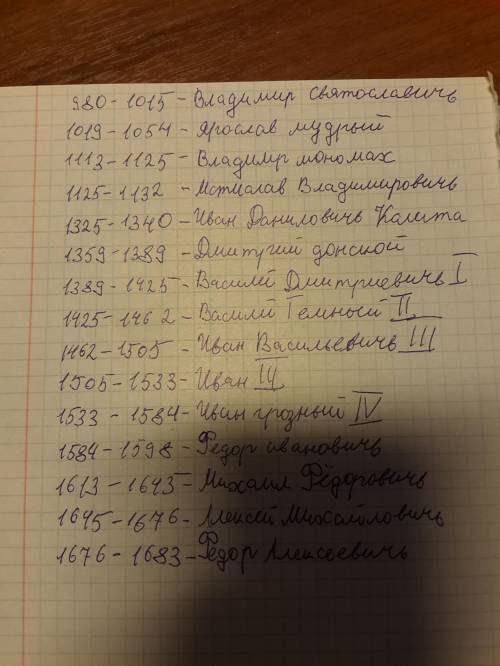 980-1015-Владимир святославичь
1019-1054-Ярослав мудрый
1113-1125-Владимир мономах
1125-1132-Мстиалав Владимировичь
1325-1340-Иван Данилович Калита
1359-1389-Дмитугий донской
1389-1425-Василий Дмитриевичь I
1425-1462-Василий Темный II
1462-1505-Иван Васильевичь III
1505-1533-Иван III
1533-1584-Иван грозный IV
1584-1598-Фёдор ивановичь
1613-1645-Михаил Фёдоровичь
1645-1676-Алексей Михайловичь
1676-1683-Фёдор Алексеевичь